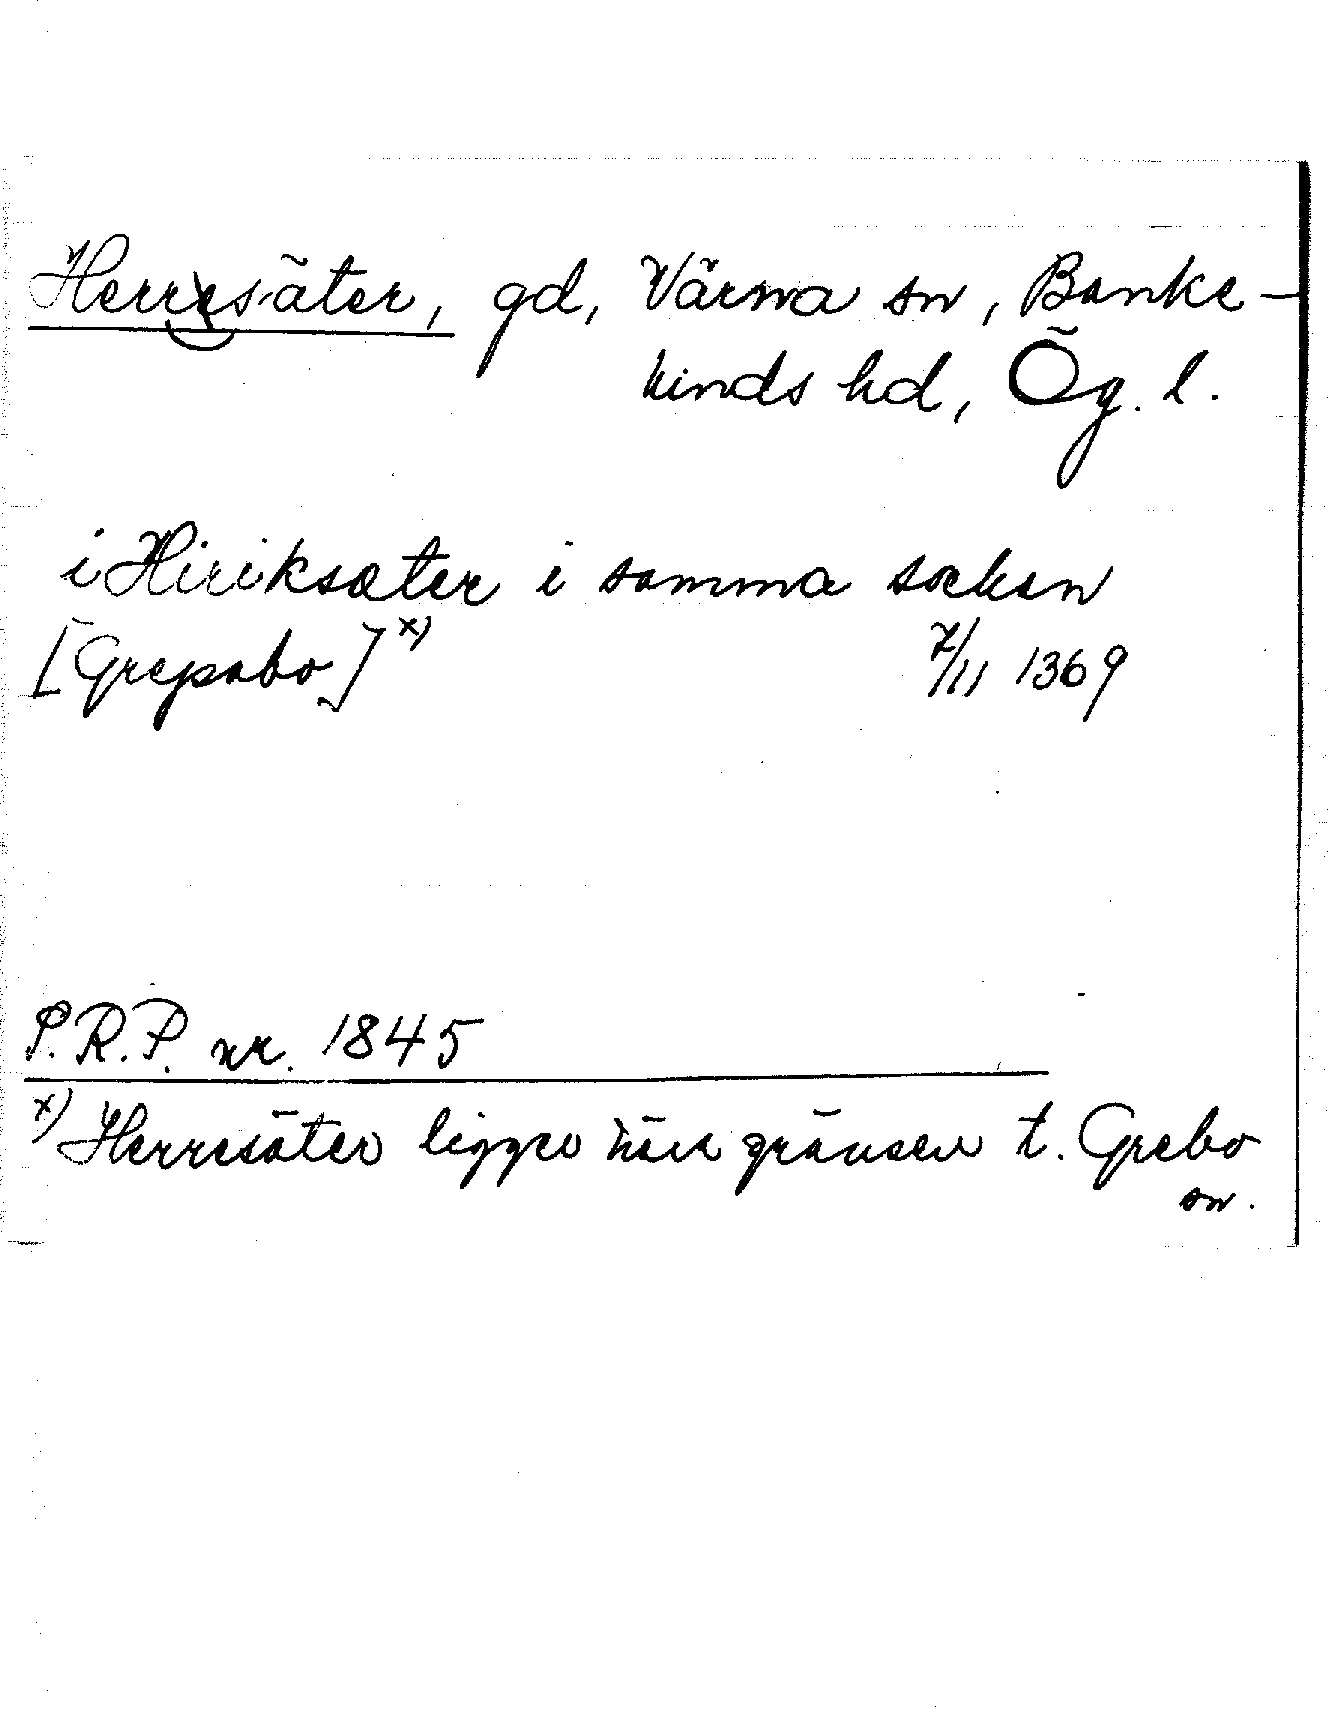 Herresäter, gd, Värna sn, Banke-
kinds hd, Ög. l.
i Hiriksæter i samma sokn
[Grepabo] x) 7/11 1369
P.R.P. nr. 1845
x) Herresäter ligger nära gränsen t. Grebo
sn.